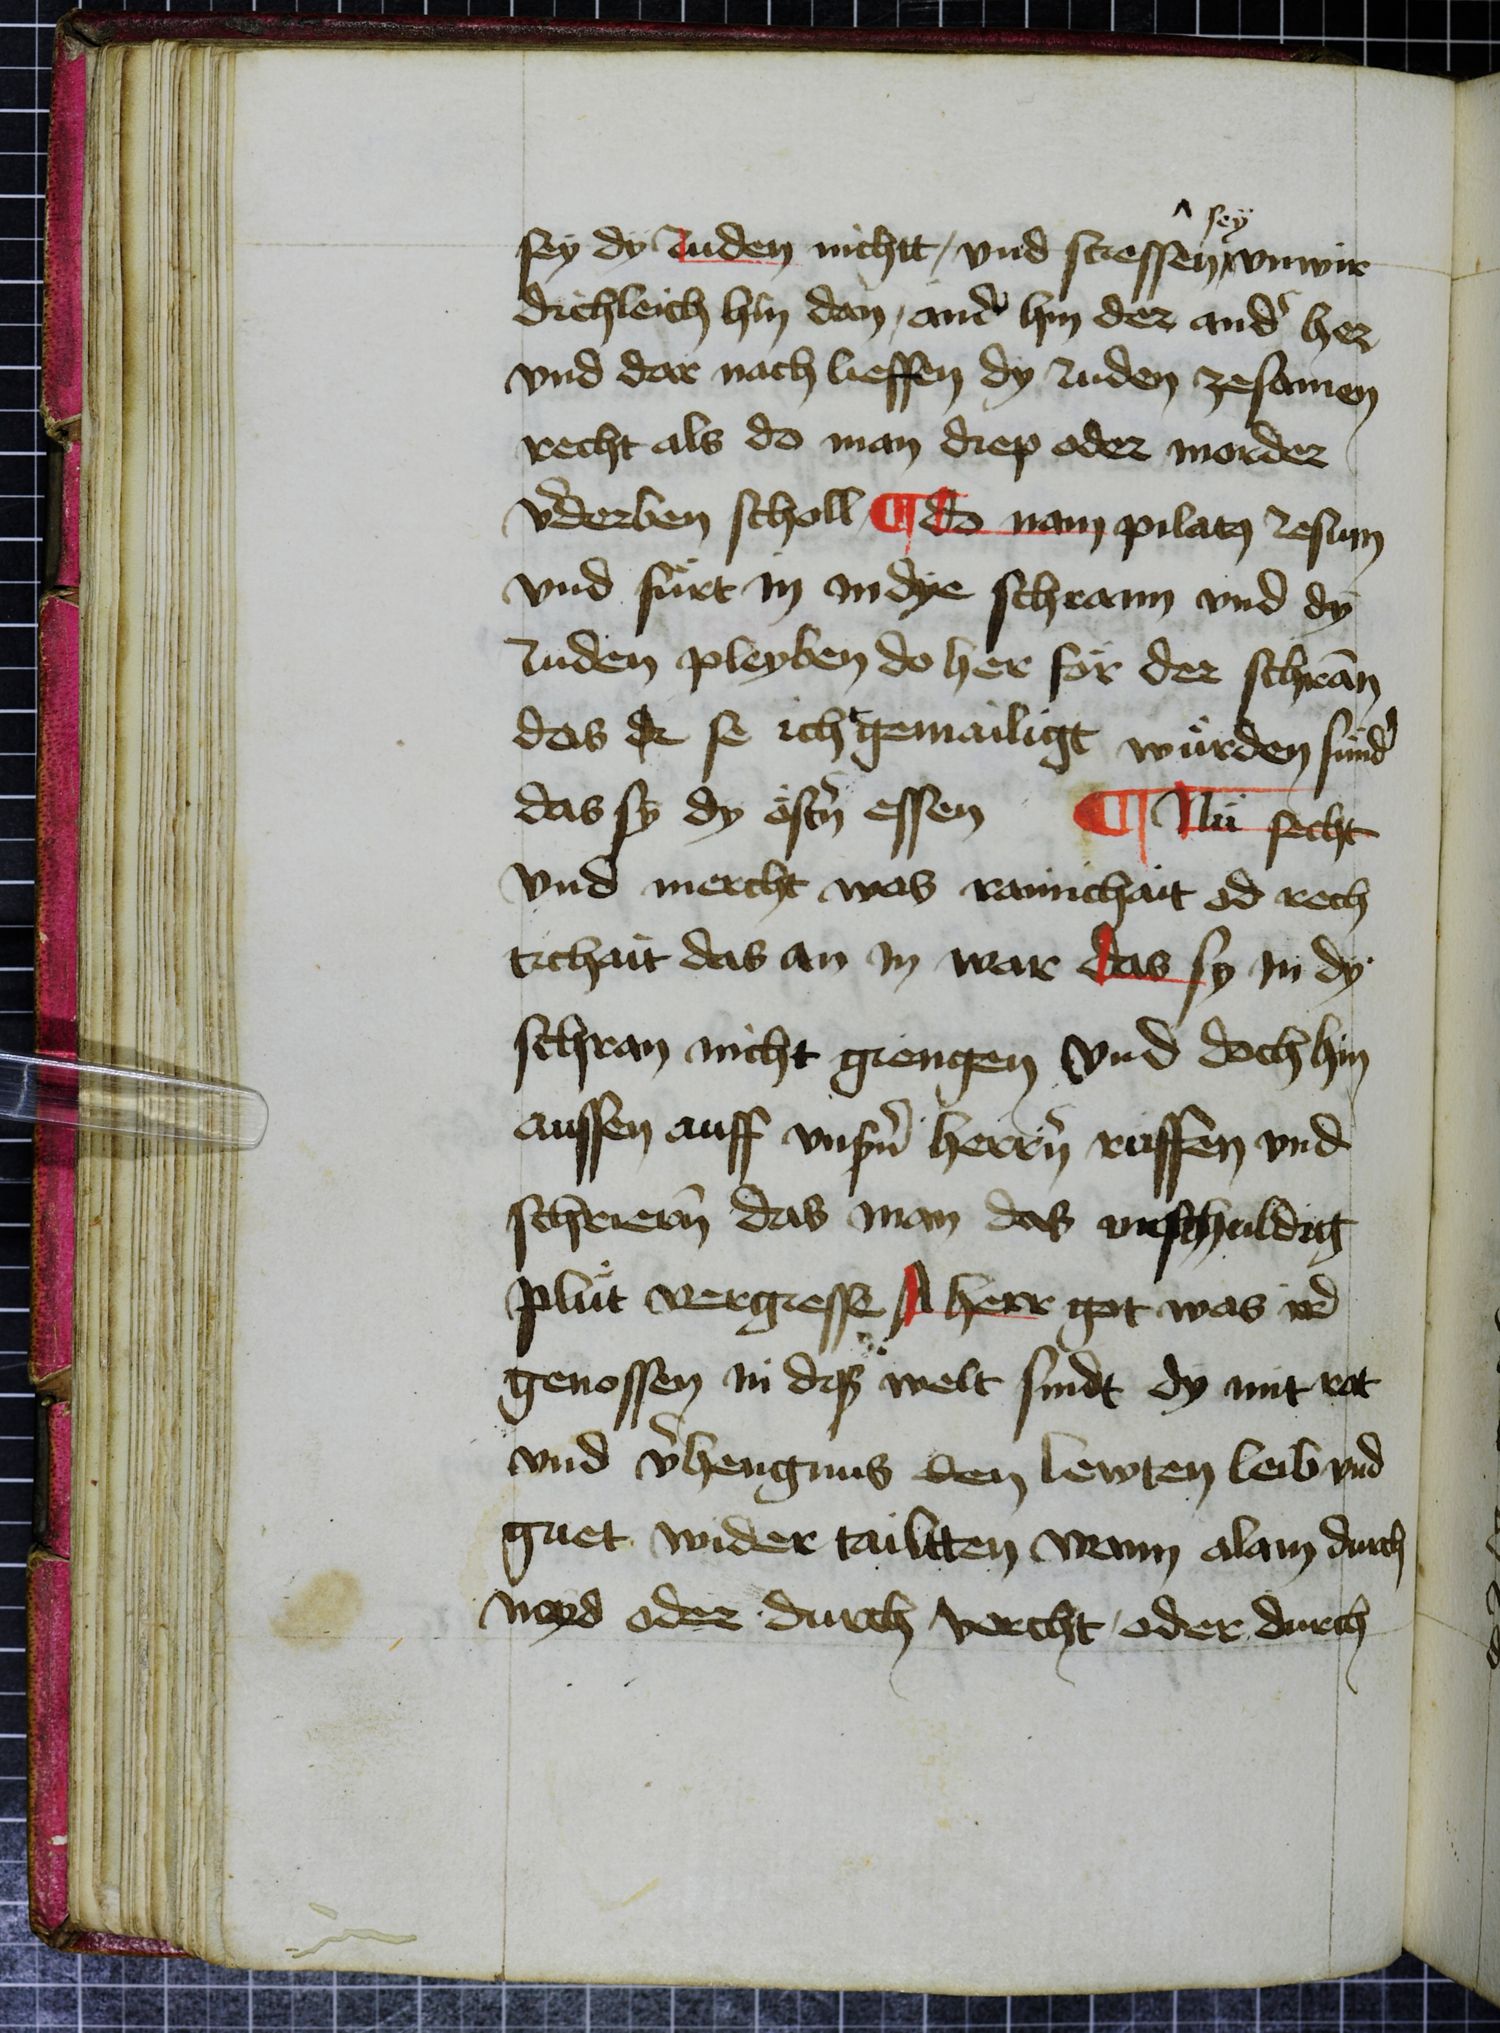 sey
sey dy Juden nichtt / vnd stiessen vnwir
dichleich hin dan / ainer hin der ander her
vnd dar nach lieffen dy Juden zesamen
recht als do man diep oder morder
v̉derben scholl ¶ do nam pilatus Jesum
vnd fürt in in dye schrann vnd dy
Juden pleyben do her for der schrān
das se icht gemailigt würden sund̉
das sy dy östn̉ essen ¶ Nü secht
vnd mercht was rainichait od rech
tichait das an in war das sy in dy
schran nicht giengen vnd doch hin
aussen auff vnsn̉ herrn̉ ruffen vnd
schriern̄ das man das vnschuldig
plüt vergiesse A herr got was ir
genossen in diß welt sindt dy mit rat
vnd v̉hengnus den lewten leib vnd
guet wider tailtten wann alain durch
neyd oder durch vorcht / oder durch